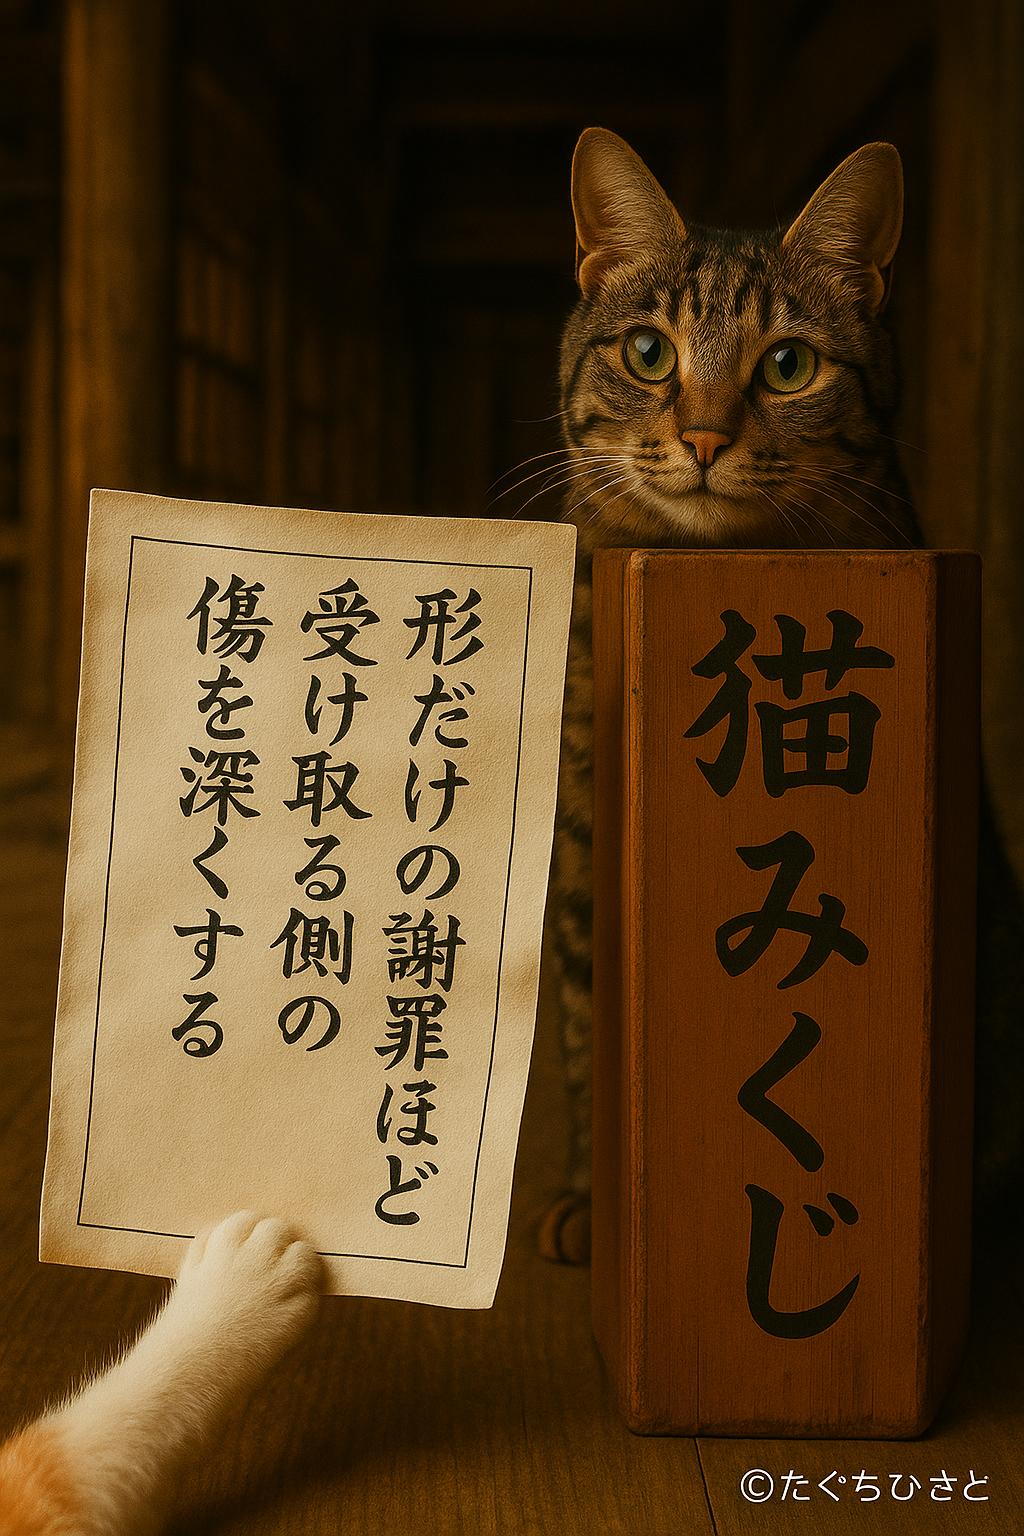 形だけの謝罪ほど
受け取る側の
傷を深くする
猫みくじ
©たぐちひさと